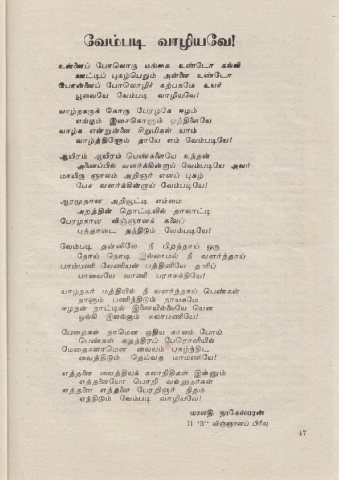 வேம்படி வாழியவே!
உன்னைப் போலொரு மங்கை உண்டோ கல்வி
ஊட்டிப் புகழ்பெறும் அன்னை உண்டோ
பொன்னைப் போலொழிச் கற்பகமே உயர்
பூவையே வேம்படி வாழியவே!
வாழ்நகருக் கொரு பேரழகே ஈழம்
எங்கும் இசைகொளும் ஏந்திழையே
வாழ்க என்றுன்னை சிறுமிகள் யாம்
வாழ்த்தினோம் தாயே எம் வேம்படியே!
ஆயிரம் ஆயிரம் பெண்களையே உந்தன்
அணைப்பில் வளர்க்கின்றாய் வேம்படியே அவர்
மாயிரு ஞாலம் அறிஞர் எனப் புகழ்
பேச வளர்க்கின்றாய் வேம்படியே!
ஆரமுதான அறிவூட்டி எம்மை
அறத்தின் தொட்டிலில் தாலாட்டி
பேரழகான விஞ்ஞானக் கலைப்
புத்தாடை தந்திடும் வேம்படியே!
வேம்படி தன்னிலே நீ பிறந்தாய் ஒரு
நோய் நொடி இல்லாமல் நீ வளர்ந்தாய்
பாம்பணி வேணியன் பத்தினியே தாரிப்
பாவையே வாணி பராசக்தியே!
யாழ்நகர் மத்தியில் நீ வளர்ந்தாய் பெண்கள்
நாளும் பணிந்திடும் நாயகமே
ஈழநன் நாட்டில் இணையில்லையே யென
ஒங்கி இலங்கும் கலாமணியே!
பேதைகள் நாமென ஓதிய காலம் போய்
பெண்கள் சுதந்திரப் பேரொளியில்
மேதைகளாமென வையம் புகழ்ந்திட
வைத்திடும் தெய்வத மாமணியே!
எத்தனை வைத்தியக் கலாநிதிகள் இன்னும்
எத்தனையோ பொறி வல்லுநர்கள்
எத்தனை எத்தனை பேரறிஞர் நிதம்
ஏந்திடும் வேம்படி வாழியவே!
மாலதி நாகேஸ்வரன்
11 "B" விஞ்ஞானப் பிரிவு
47